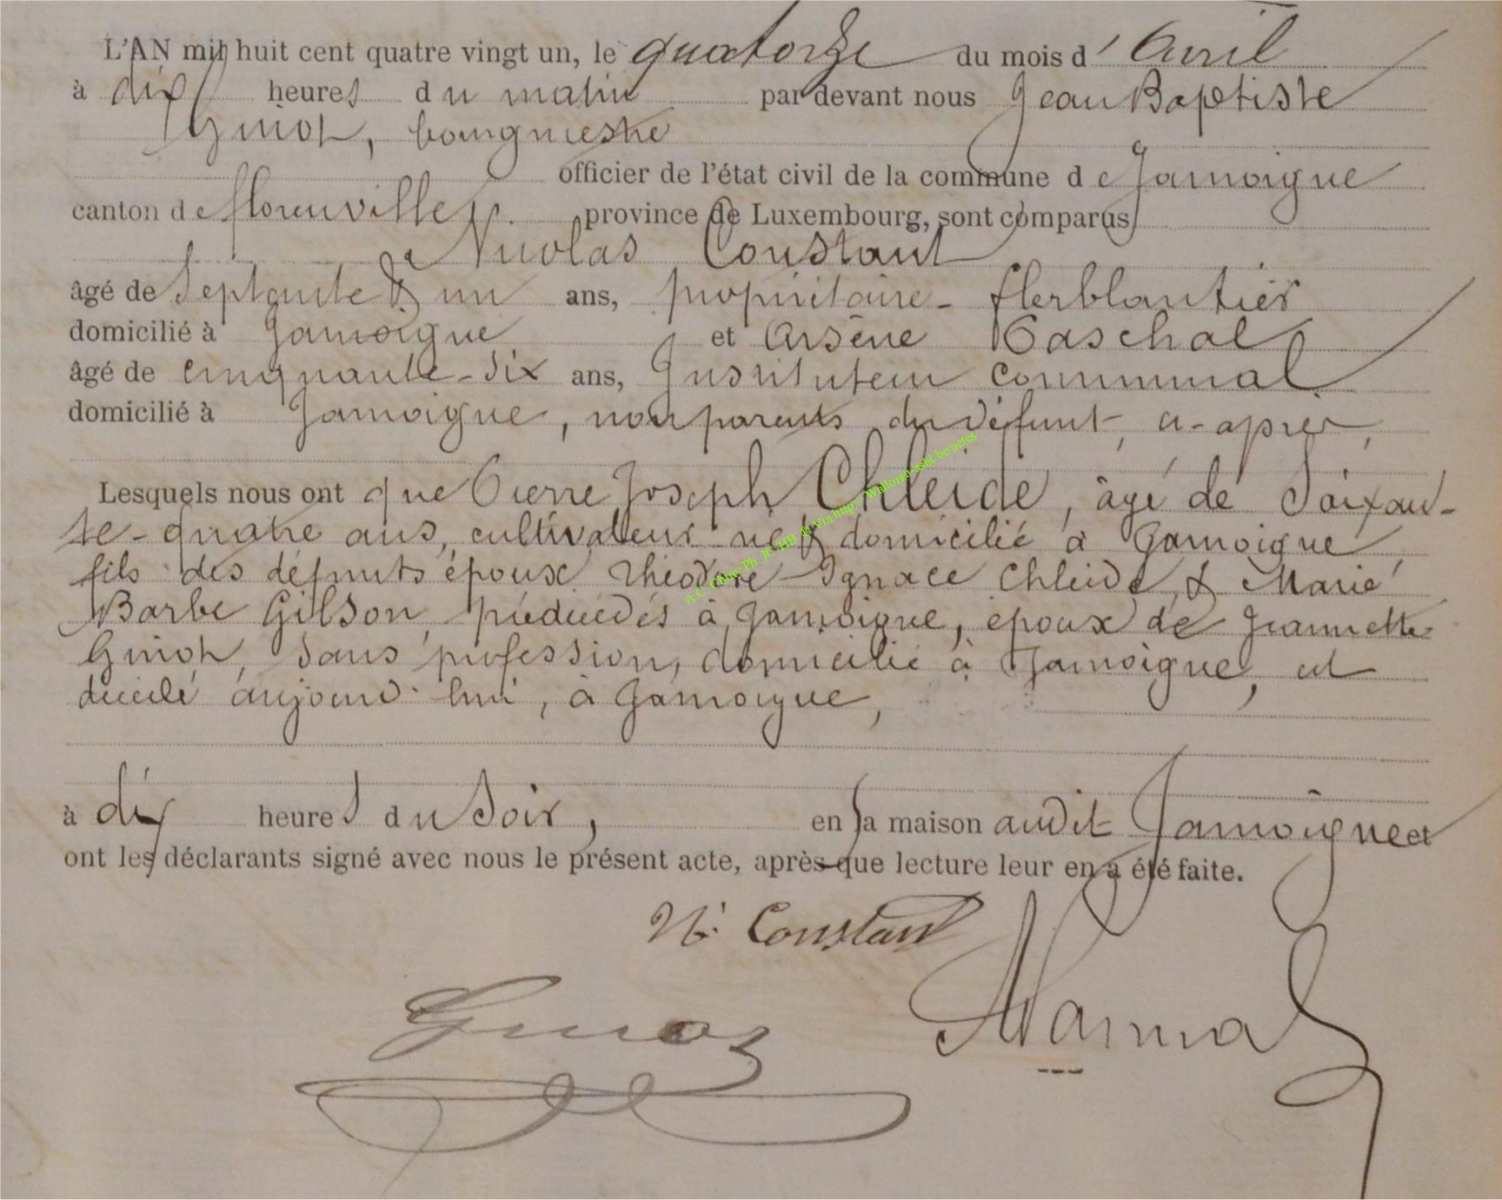 L'AN mil huit cent quatre vingt un, le quatorze du mois d'Avril
à dix heures du matin par devant nous Jean Baptiste
bourgmestre
officier de l'état civil de la commune de Jamoigne
canton de florenville, province de Luxembourg, sont comparus
Nicolas Constant
âgé de Septante & un ans, propriétaire - ferblantier
domicilié à Jamoigne et Arsène Paschal
âgé de cinquante-six ans, Instituteur Communal
domicilié à Jamoigne, non parents du défunt, ci-après,
Lesquels nous ont que Pierre Joseph Chleide, âgé de Soixan-
te-quatre ans, cultivateur né & domicilié à Jamoigne
fils des défunts époux Théodore-Ignace Chleide, & Marie
Barbe Gilson, prédécédés à Jamoigne, époux de Jeannette
sans profession, domicilié à Jamoigne, est
décédé aujourd'hui, à Jamoigne,
à dix heures du Soir, en sa maison audit Jamoigne et
ont les déclarants signé avec nous le présent acte, après que lecture leur en a été faite.
N. Constant